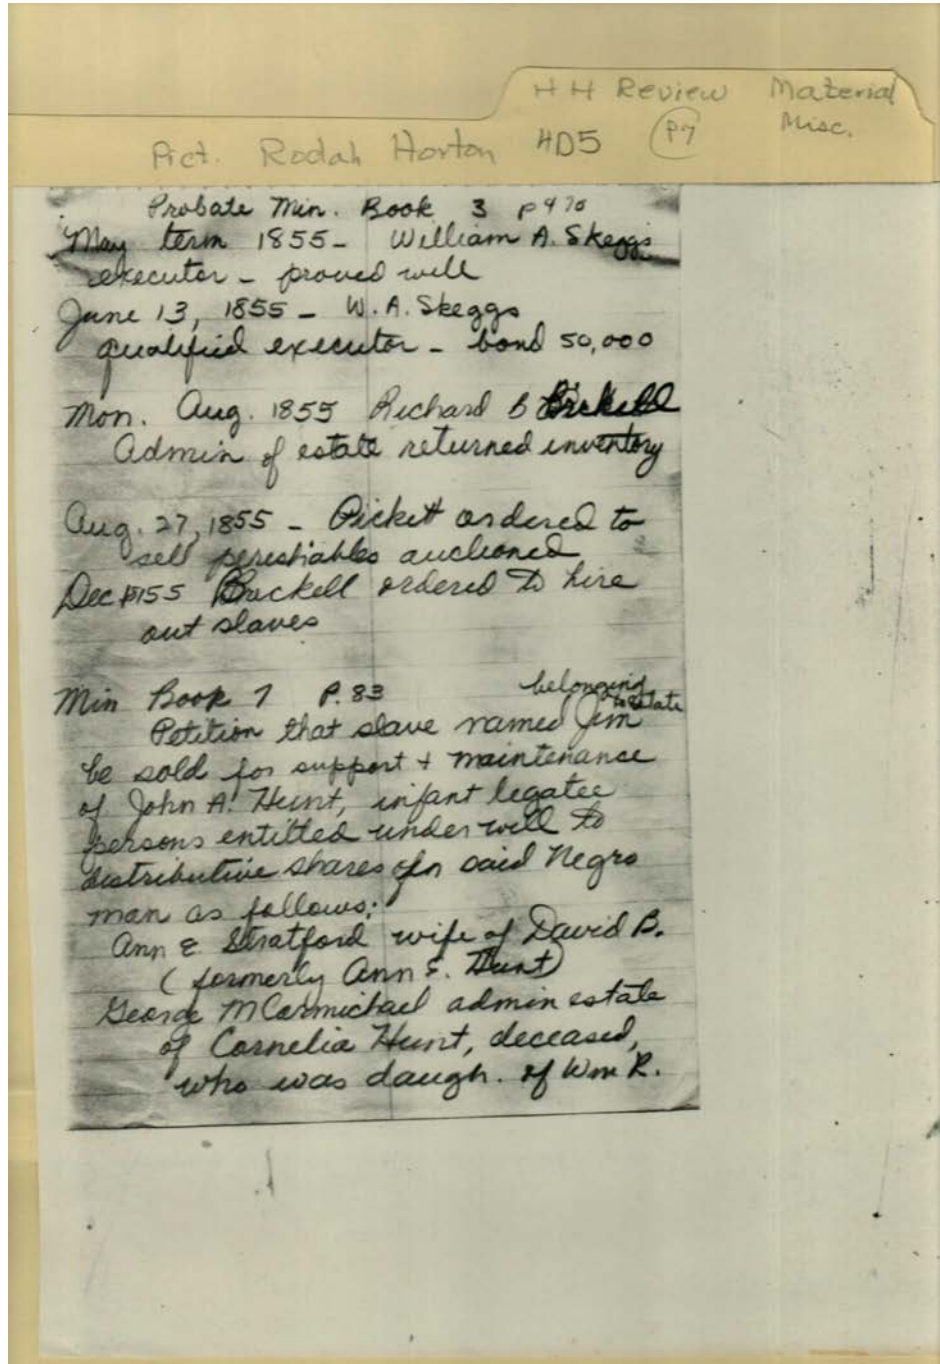 HH Review Material
Misc.
Pict. Rodah Horton 4D5 P7
Probate Min. Book 3 p470
May term 1855- William A. Skeggs
executor - proved will
June 13, 1855 - W. A. Skeggs
qualified executor - bond 50,000
Mon. Aug. 1855 Richard B
Admin of estate returned inventory
Aug. 27, 1855 - Pickett ordered to
sell perishables auctioned
Dec 1855 Brickell ordered to hire
out slaves
Min Book 7 P. 83
belonging
to estate
Petition that slave named Jim
be sold for support + maintenance
of John A. Hunt, infant legatee
persons entitled under will to
distributive shares of in said Negro
man as follows:
Ann E. Stratford wife of David B.
(formerly Ann E. Hunt)
George M Carmichael admin estate
of Cornelia Hunt, deceased,
who was daugh. of Wm R.